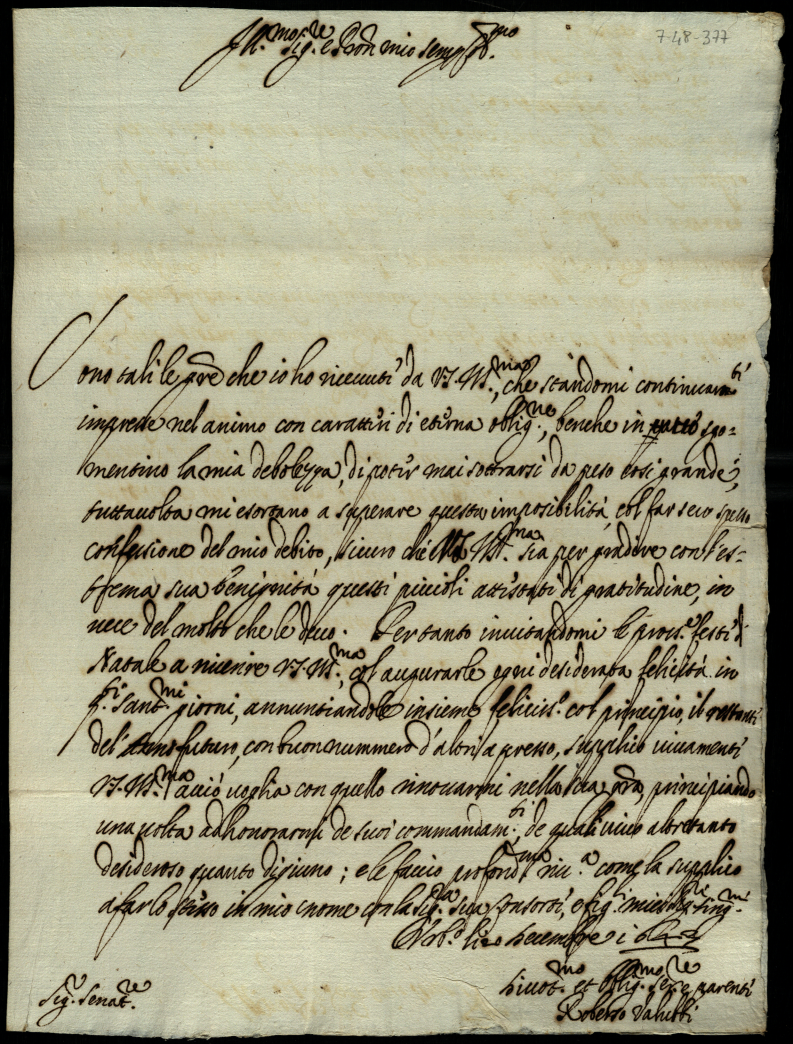 7-48-377
Ill.mo Sig.re e Pron mio semp.
Sono tali le gre che io ho riceuuti da V.S. Ill.ma, che standomi continuam.ti
impresse nel animo con caratteri di eterna oblig.ne, benche in tutto sgo-
mentino la mia debolezza, di poter mai sottrarsi da peso così grande,
tuttauolta mi esortano a superare questa imposibilità col far seco spesso
confessione del mio debito, sicuro che V.S. Ill.ma sia per gradire con l'es-
trema sua benignità questi piccioli attestati di gratitudine, in
uece del molto che le deuo. Per tanto inuitandomi le pross.e feste di
Natale a riuerire V.S. Ill.ma, col augurarle ogni desiderata felicità in
q.ti sant.mi giorni, annuntiandole insieme feliciss.o col principio, il restante
del Anno futuro, con buon nummero d'altri apresso, supplico uiuamente
V.S. Ill.ma acciò uoglia con quello rinouarmi nella sua gra, principiando
una uolta ad honorarmi de suoi commandam.ti, de quali uiuo altretanto
desideroso quanto digiuno; e le faccio profond.ma riu.a come la supplico
a farlo in mio nome con la Sig.ra sua Consorte, e fig.i miei
li 20 Decembre
Diuot.mo et Oblig.mo Ser.re e parente
Roberto
Sig.r Senat.re